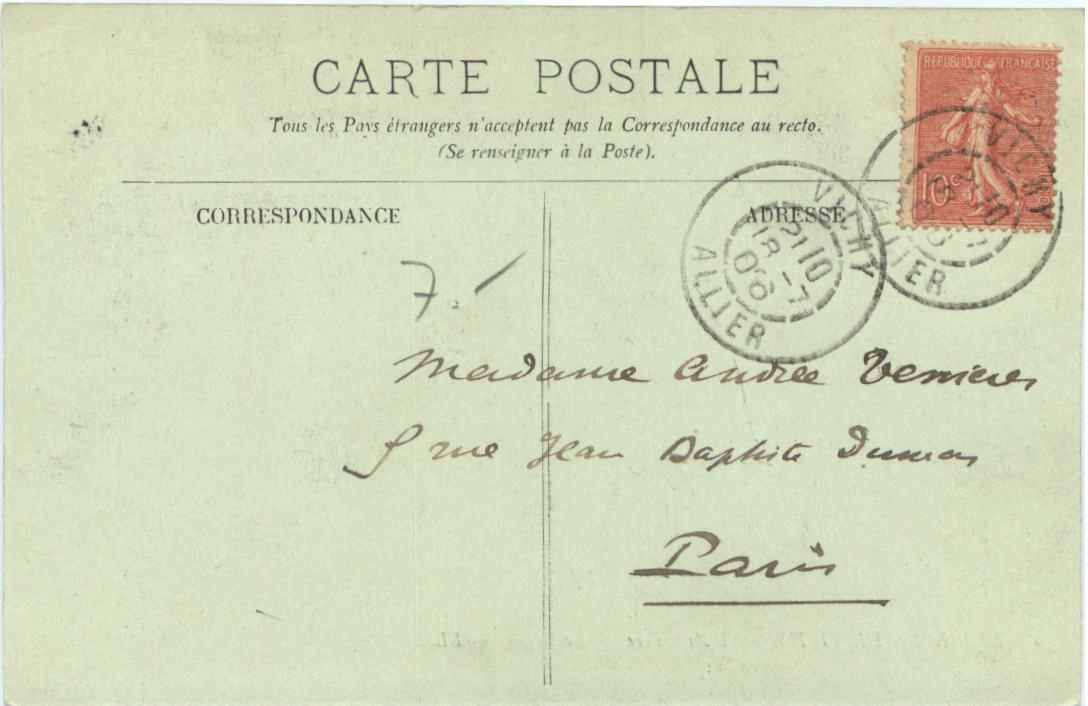 CARTE POSTALE
Tous les Pays étrangers n'acceptent pas la Correspondance au recto.
(Se renseigner à la Poste).
REPUBLIQUE FRANÇAISE
10c
VICHY
ALLIER
CORRESPONDANCE
ADRESSE
VICHY
21 10
18 - 7
06
ALLIER
7
Madame Andrée
5 rue Jean Baptiste Dumas
Paris